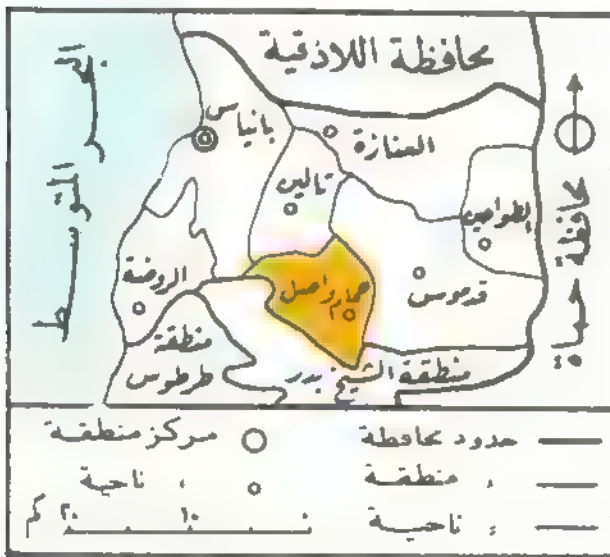 محافظة اللاذقية
البحر المتوسط
بانياس
العنازة
تالين
الطواحين
محافظة حماة
الروضة
حمام واصل
قدموس
منطقة طرطوس
منطقة الشيخ بدر
حدود محافظة
مركز منطقة
، منطقة
، ناحية
، ناحية
٢٠ ١٠ كم